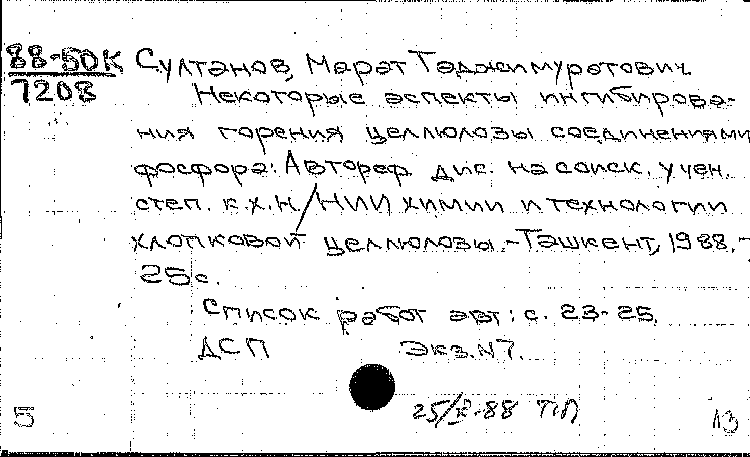 88-50К Султанов, Марат Таджимуратович.
7208 Некоторые аспекты ингибирова-
ния горения целлюлозы соединениями
фосфора: Автореф. дис. на соиск. учен.
степ. к.х.н. / НИИ химии и технологии
хлопковой целлюлозы. - Ташкент, 1988. -
25 с.
Список работ авт.: с. 23-25.
ДСП Экз. N7.
25/X-88 ТП
5 13